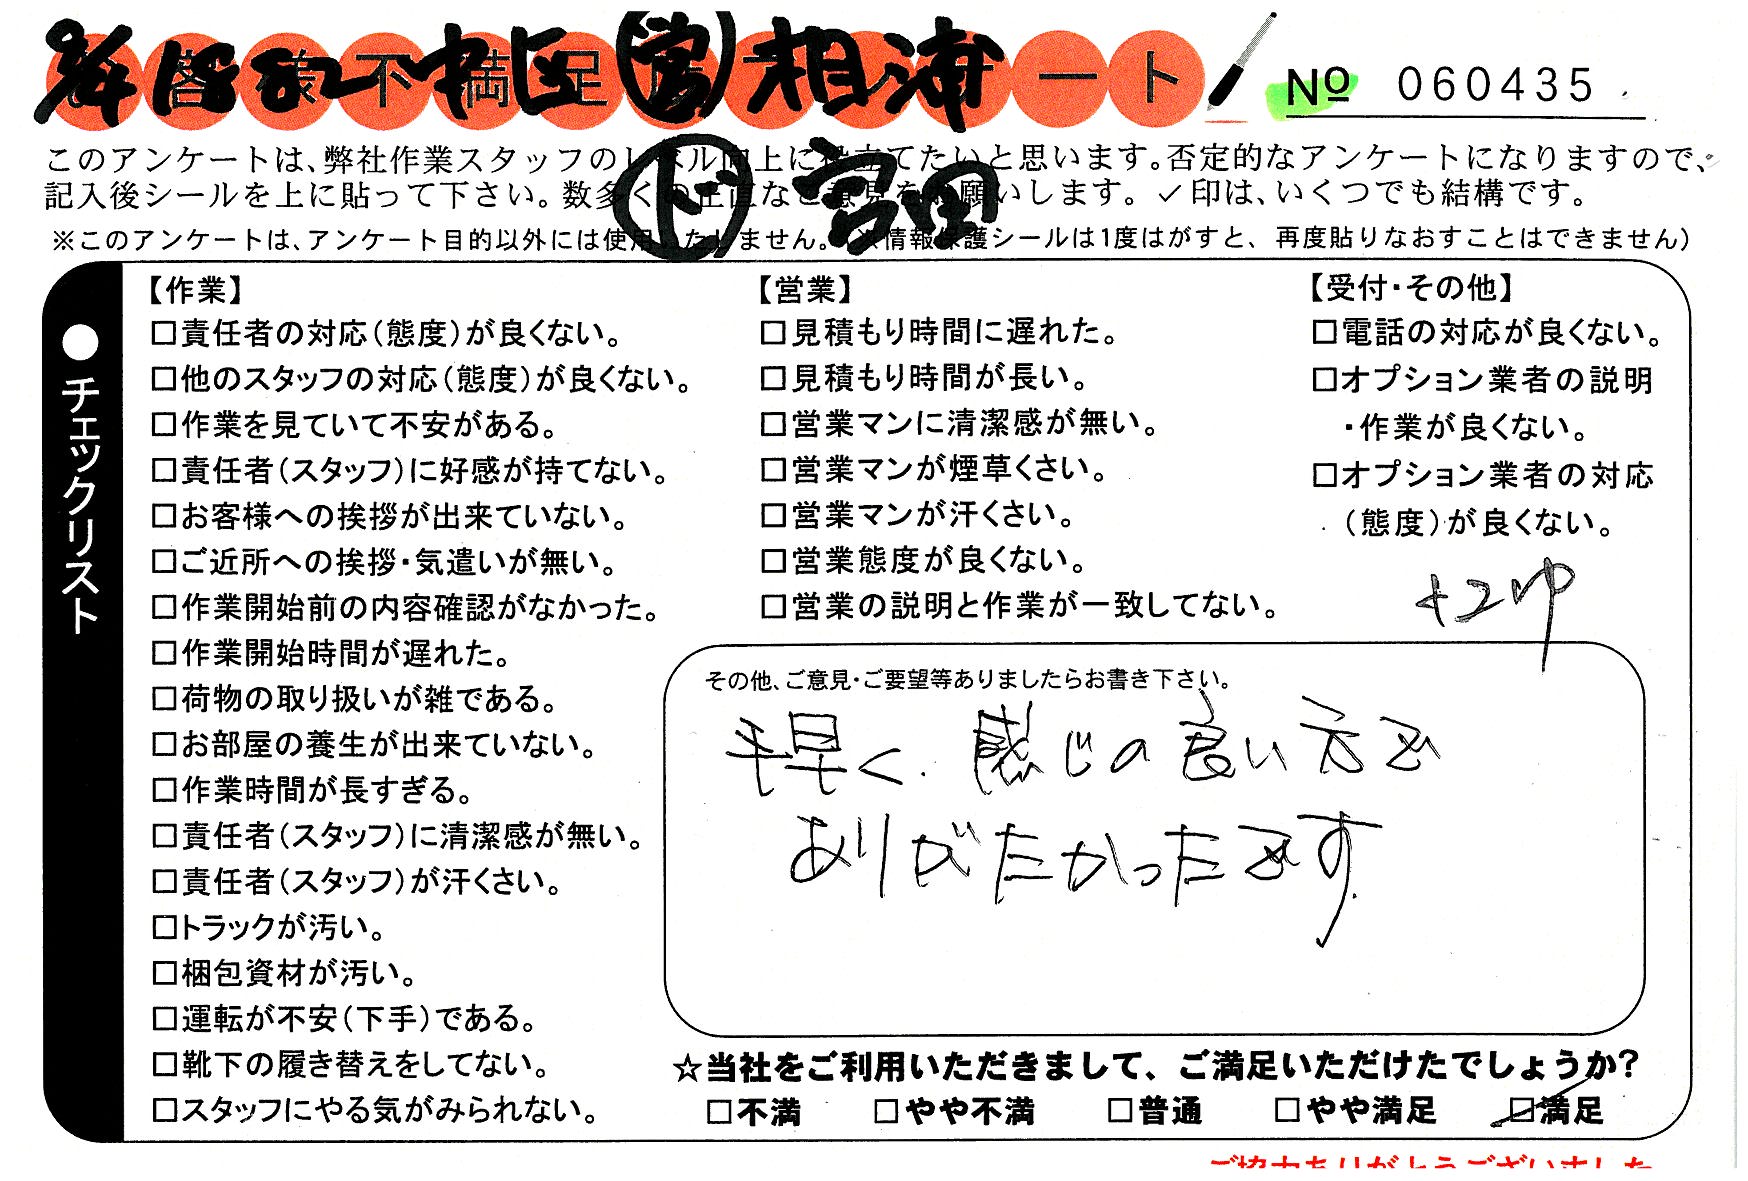 お客様不満足度アンケート
中区 営 相浦
№ 060435
このアンケートは、弊社作業スタッフのレベル向上に役立てたいと思います。否定的なアンケートになりますので、
ド 宮田
記入後シールを上に貼って下さい。数多くの正直なご意見をお願いします。✓印は、いくつでも結構です。
※このアンケートは、アンケート目的以外には使用いたしません。(※情報保護シールは1度はがすと、再度貼りなおすことはできません)
●チェックリスト
【作業】
□責任者の対応(態度)が良くない。
□他のスタッフの対応(態度)が良くない。
□作業を見ていて不安がある。
□責任者(スタッフ)に好感が持てない。
□お客様への挨拶が出来ていない。
□ご近所への挨拶・気遣いが無い。
□作業開始前の内容確認がなかった。
□作業開始時間が遅れた。
□荷物の取り扱いが雑である。
□お部屋の養生が出来ていない。
□作業時間が長すぎる。
□責任者(スタッフ)に清潔感が無い。
□責任者(スタッフ)が汗くさい。
□トラックが汚い。
□梱包資材が汚い。
□運転が不安(下手)である。
□靴下の履き替えをしてない。
□スタッフにやる気がみられない。
【営業】
□見積もり時間に遅れた。
□見積もり時間が長い。
□営業マンに清潔感が無い。
□営業マンが煙草くさい。
□営業マンが汗くさい。
□営業態度が良くない。
□営業の説明と作業が一致してない。
【受付・その他】
□電話の対応が良くない。
□オプション業者の説明
・作業が良くない。
□オプション業者の対応
(態度)が良くない。
その他、ご意見・ご要望等ありましたらお書き下さい。
手早く、感じの良い方で
ありがたかったです
☆当社をご利用いただきまして、ご満足いただけたでしょうか?
□不満 □やや不満 □普通 □やや満足 □満足
ご協力ありがとうございました